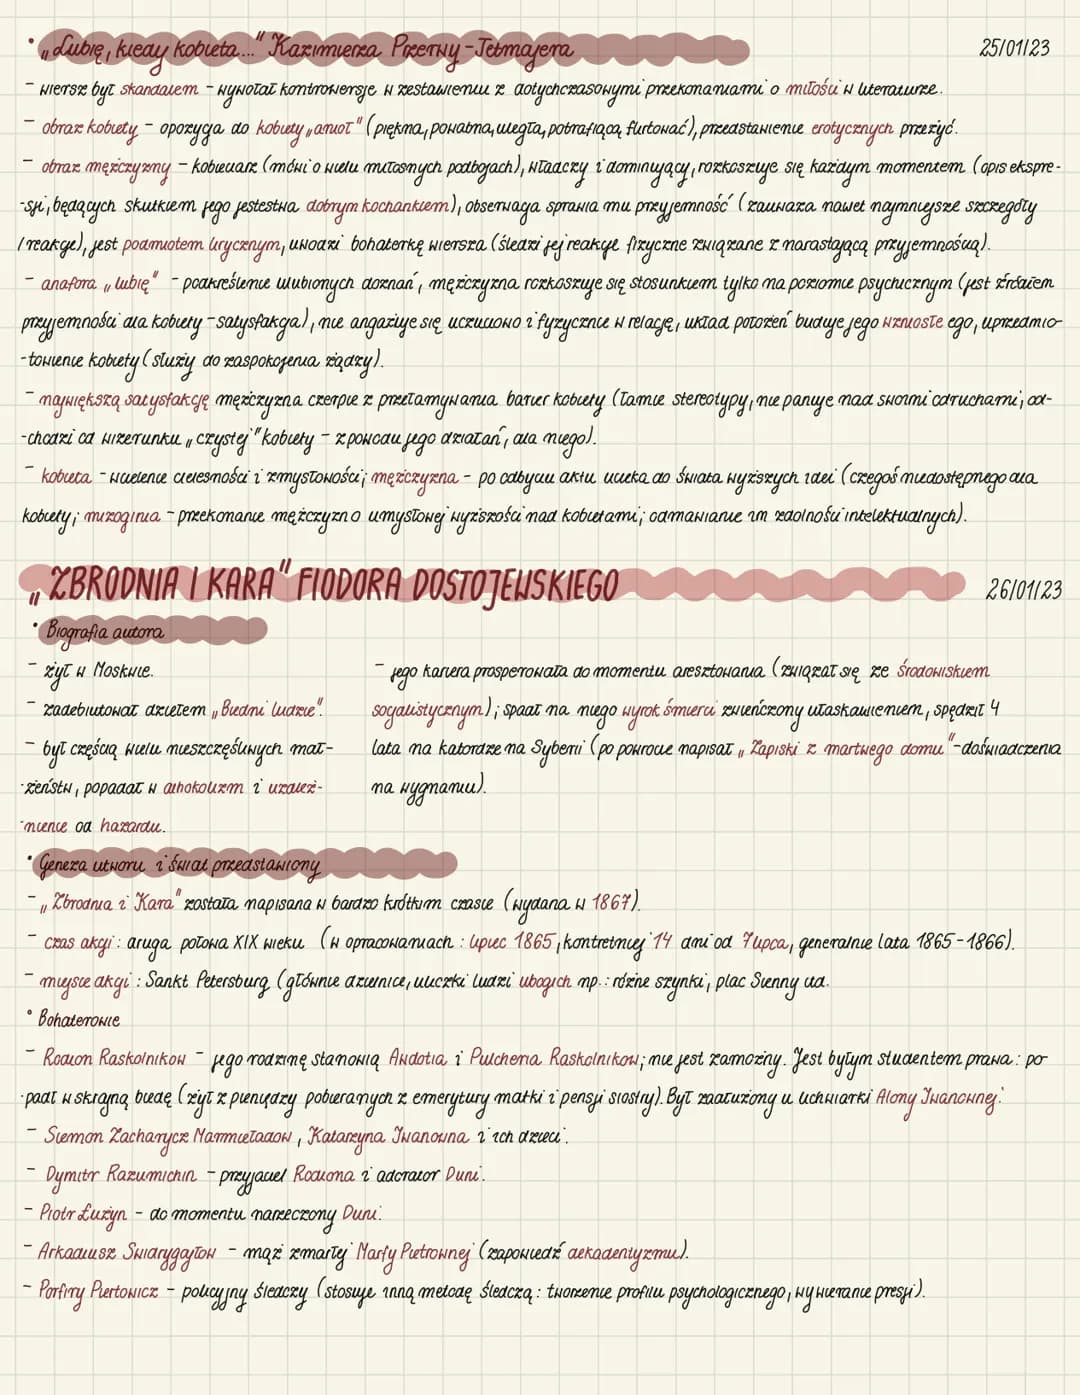 • „Lubię, kiedy kobieta..." Kazimierza Przerwy-Tetmajera 25/01/23
- wiersz był skandalem - wywołał kontrowersje w zestawieniu z dotychczasowymi przekonaniami o miłości w literaturze.
- obraz kobiety - opozycja do kobiety „anioł" (piękna, powabna, uległa, potrafiąca flirtować), przedstawienie erotycznych przeżyć.
- obraz mężczyzny - kobieciarz (mówi o wielu miłosnych podbojach), władczy i dominujący, rozkoszuje się każdym momentem (opis ekspre-
-sji, będących skutkiem jego jestestwa dobrym kochankiem), obserwacja sprawia mu przyjemność (zauważa nawet najmniejsze szczegóły
/reakcje), jest podmiotem lirycznym, uwodzi bohaterkę wiersza (śledzi jej reakcje fizyczne związane z narastającą przyjemnością).
- anafora „lubię" - podkreślenie ulubionych doznań, mężczyzna rozkoszuje się stosunkiem tylko na poziomie psychicznym (jest źródłem
przyjemności dla kobiety - satysfakcja), nie angażuje się uczuciowo i fizycznie w relację, układ położeń buduje jego wzniosłe ego, uprzedmio-
-towienie kobiety (służy do zaspokojenia żądzy).
- największą satysfakcję mężczyzna czerpie z przełamywania barier kobiety (łamie stereotypy, nie panuje nad swoimi odruchami, od-
-chodzi od wizerunku „czystej" kobiety - z powodu jego działań, dla niego).
- kobieta - wcielenie cielesności i zmysłowości; mężczyzna - po odbyciu aktu ucieka do świata wyższych idei (czegoś niedostępnego dla
kobiety; mizoginia - przekonanie mężczyzn o umysłowej wyższości nad kobietami; odmawianie im zdolności intelektualnych).
„ZBRODNIA I KARA" FIODORA DOSTOJEWSKIEGO 26/01/23
• Biografia autora
- żył w Moskwie.
- zadebiutował dziełem „Biedni ludzie".
- był częścią wielu nieszczęśliwych mał-
-żeństw, popadał w alhokolizm i uzależ-
-nienie od hazardu.
- jego kariera prosperowała do momentu aresztowania (związał się ze środowiskiem
socjalistycznym); spadł na niego wyrok śmierci zwieńczony ułaskawieniem, spędził 4
lata na katordze na Syberii (po powrocie napisał „Zapiski z martwego domu" - doświadczenia
na wygnaniu).
• Geneza utworu i świat przedstawiony
- „Zbrodnia i Kara" została napisana w bardzo krótkim czasie (wydana w 1867).
- czas akcji: druga połowa XIX wieku (w opracowaniach: lipiec 1865, kontretniej 14 dni od 7 lipca, generalnie lata 1865-1866).
- miejsce akcji: Sankt Petersburg (głównie dzielnice, uliczki ludzi ubogich np.: różne szynki, plac Sienny itd.
• Bohaterowie
- Rodion Raskolnikow - jego rodzinę stanowią Awdotia i Pulcheria Raskolnikow; nie jest zamożny. Jest byłym studentem prawa: po-
-padł w skrajną biedę (żył z pieniędzy pobieranych z emerytury matki i pensji siostry). Był zadłużony u lichwiarki Alony Iwanownej.
- Siemon Zacharycz Marmieładow, Katarzyna Iwanowna i ich dzieci.
- Dymitr Razumichin - przyjaciel Rodiona i adorator Duni.
- Piotr Łużyn - do momentu narzeczony Duni.
- Arkadiusz Swidrygajłow - mąż zmarłej Marfy Pietrownej (zapowiedź dekadentyzmu).
- Porfiry Piertowicz - policyjny śledczy (stosuje inną metodę śledczą: tworzenie profilu psychologicznego, wywieranie presji).